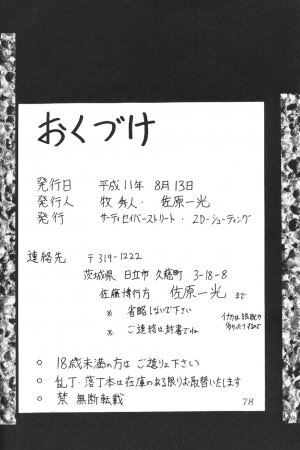 おくづけ
発行日 平成11年 8月13日
発行人 牧 秀人・ 佐原一光
発行 サーティセイバーストリート・2D-シューティング
連絡先 〒319-1222
茨城県 日立市 久慈町 3-18-8
佐藤博行方 佐原一光 まで
※ 省略しないで下さい
※ ご連絡は封書でね
○ 18歳未満の方は ご遠りょ下さい
○ 乱丁・落丁本は在庫のある限りお取替いたします
○ 禁 無断転載
78